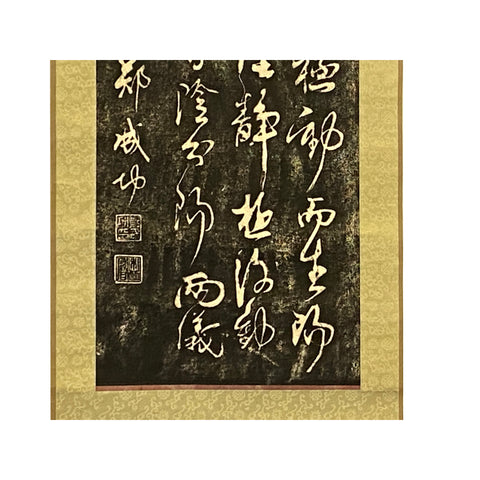 極動而生陽
靜極復動
陰分陽兩儀
鄭成功